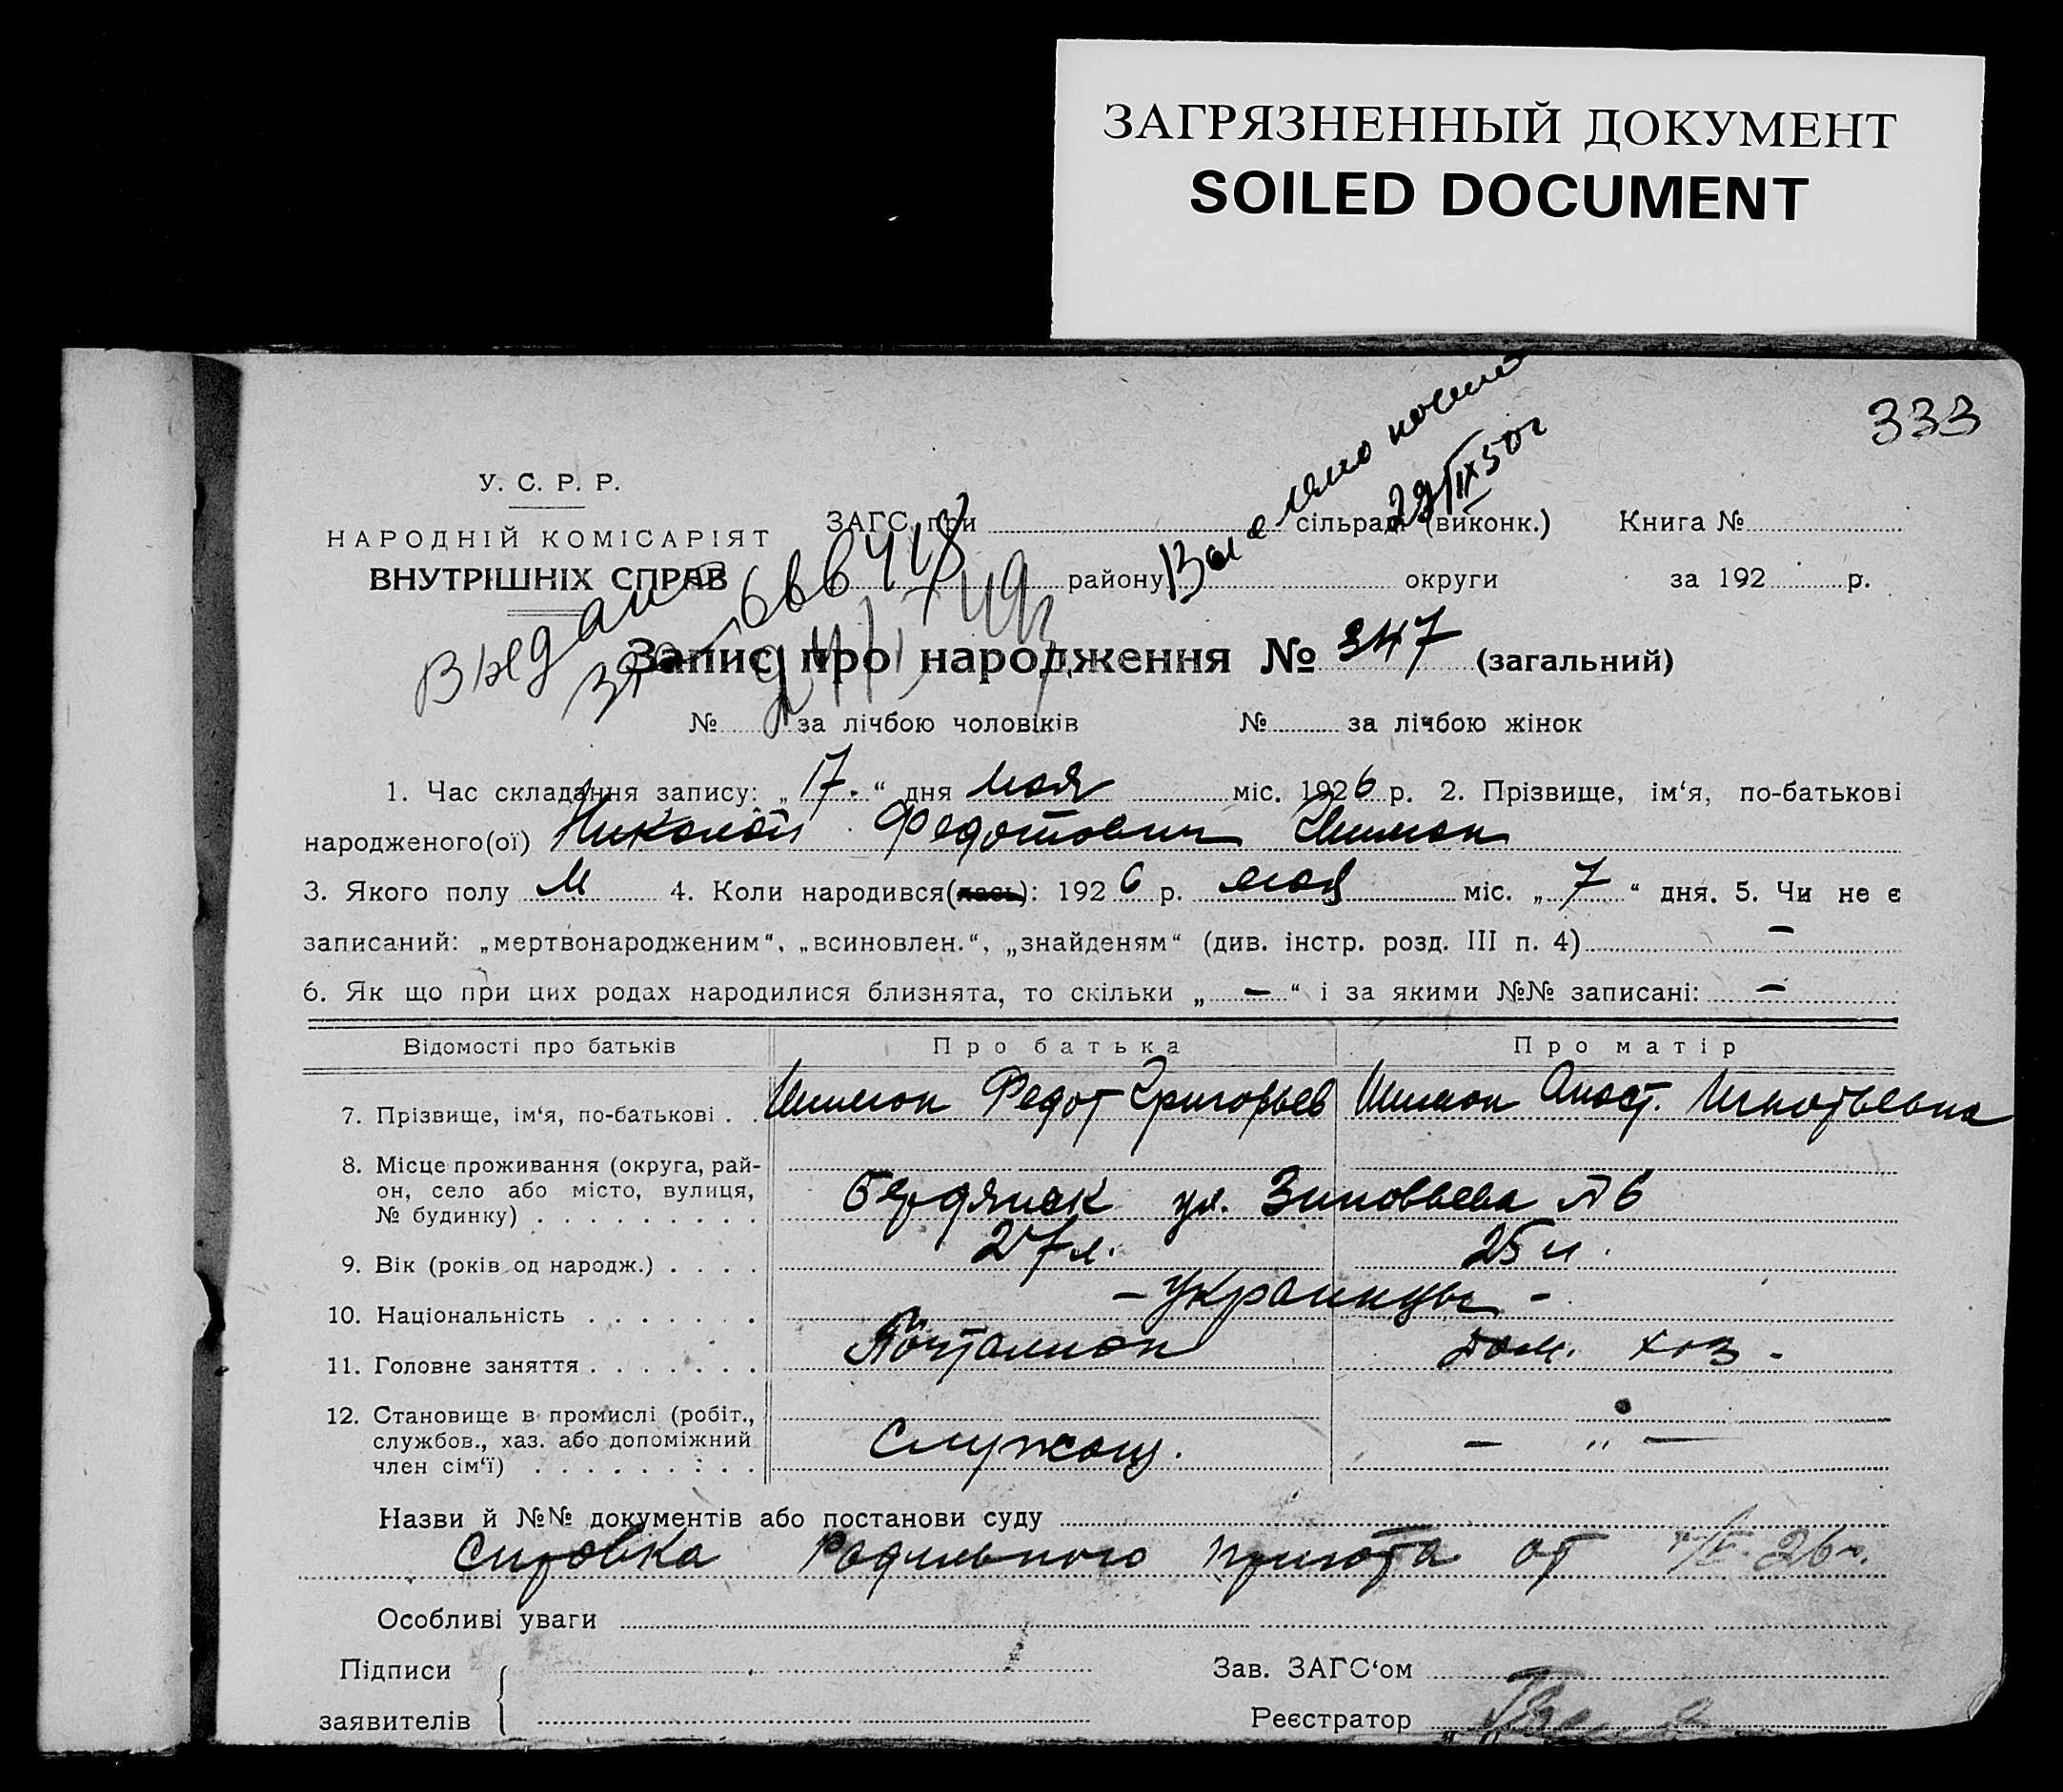 ЗАГРЯЗНЕННЫЙ ДОКУМЕНТ
SOILED DOCUMENT
333
29/IX 50 г
У. С. Р. Р.
НАРОДНІЙ КОМІСАРІЯТ
ВНУТРІШНІХ СПРАВ
ЗАГС при сільраді (виконк.) Книга №
району округи за 192 р.
Выдано
Запис про народження № 347 (загальний)
№ за лічбою чоловіків № за лічбою жінок
1. Час складання запису: „17.“ дня мая міс. 1926 р. 2. Прізвище, ім‘я, по-батькові
народженого(ої) Николай Федотович
3. Якого полу М 4. Коли народився(лась): 1926 р. мая міс. „7“ дня. 5. Чи не є
записаний: „мертвонародженим“, „всиновлен.“, „знайденям“ (див. інстр. розд. III п. 4) –
6. Як що при цих родах народилися близнята, то скільки „–“ і за якими №№ записані: –
Відомості про батьків Про батька Про матір
7. Прізвище, ім‘я, по-батькові . . Федот Григорьев Анаст. Игнатьевна
8. Місце проживання (округа, рай-
он, село або місто, вулиця,
№ будинку) . . . . . . . . . Бердянск ул. Зиновьева № 6
9. Вік (років од народж.) . . . . 27 л. 25 л.
10. Національність . . . . . . . – украинцы –
11. Головне заняття . . . . . . . Почталион дом. хоз.
12. Становище в промислі (робіт.,
службов., хаз. або допоміжний
член сім‘ї) . . . . . . . . . Служащ. – „ –
Назви й №№ документів або постанови суду
Справка Родильного приюта от 26 г.
Особливі уваги
Підписи Зав. ЗАГС‘ом
заявителів Реєстратор